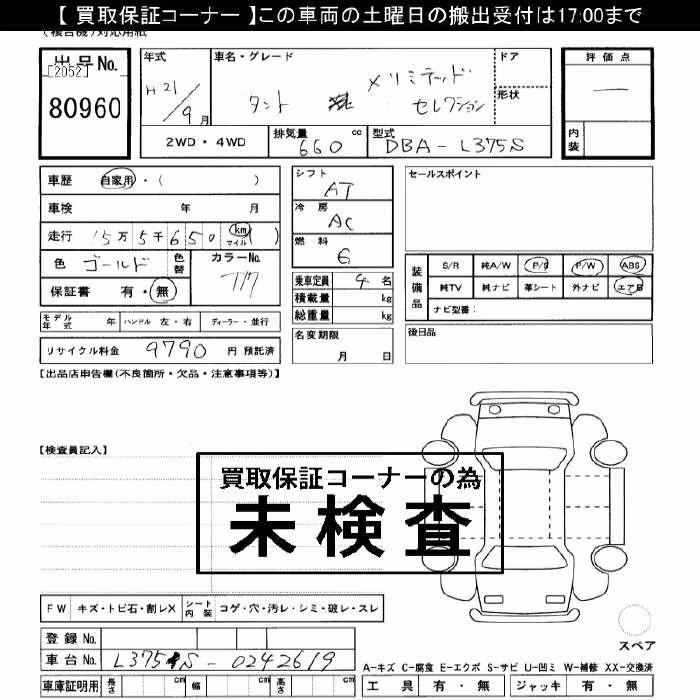 【 買取保証コーナー 】この車両の土曜日の搬出受付は17:00まで
(複合機)対応用紙
出品No.
[2052]
80960
年式
H21/9月
車名・グレード
タント
Xリミテッド
セレクション
ドア
形状
評価点
内装
2WD・4WD
排気量 660 cc
型式 DBA-L375S
車歴 自家用・( )
車検 年 月
走行 15万5千650 km マイル ( )
色 ゴールド 色替
カラーNo.
保証書 有・無
シフト AT
冷房 AC
燃料 G
乗車定員 4 名
積載量 kg
総重量 kg
セールスポイント
装備品 S/R 純A/W P/S P/W ABS
純TV 純ナビ 革シート 外ナビ エアB
ナビ型番:
モデル年式 年 ハンドル 左・右 ディーラー・並行
リサイクル料金 9790 円 預託済
名変期限
月 日
後日品
【出品店申告欄(不良箇所・欠品・注意事項等)】
【検査員記入】
買取保証コーナーの為
未検査
FW キズ・トビ石・割レX シート内装 コゲ・穴・汚レ・シミ・破レ・スレ
スペア
登録No.
車台No. L375S-0242619
A-キズ C-腐食 E-エクボ S-サビ U-凹ミ W-補修 XX-交換済
車庫証明用 長さ cm 幅 cm 高さ cm
工具 有・無 ジャッキ 有・無